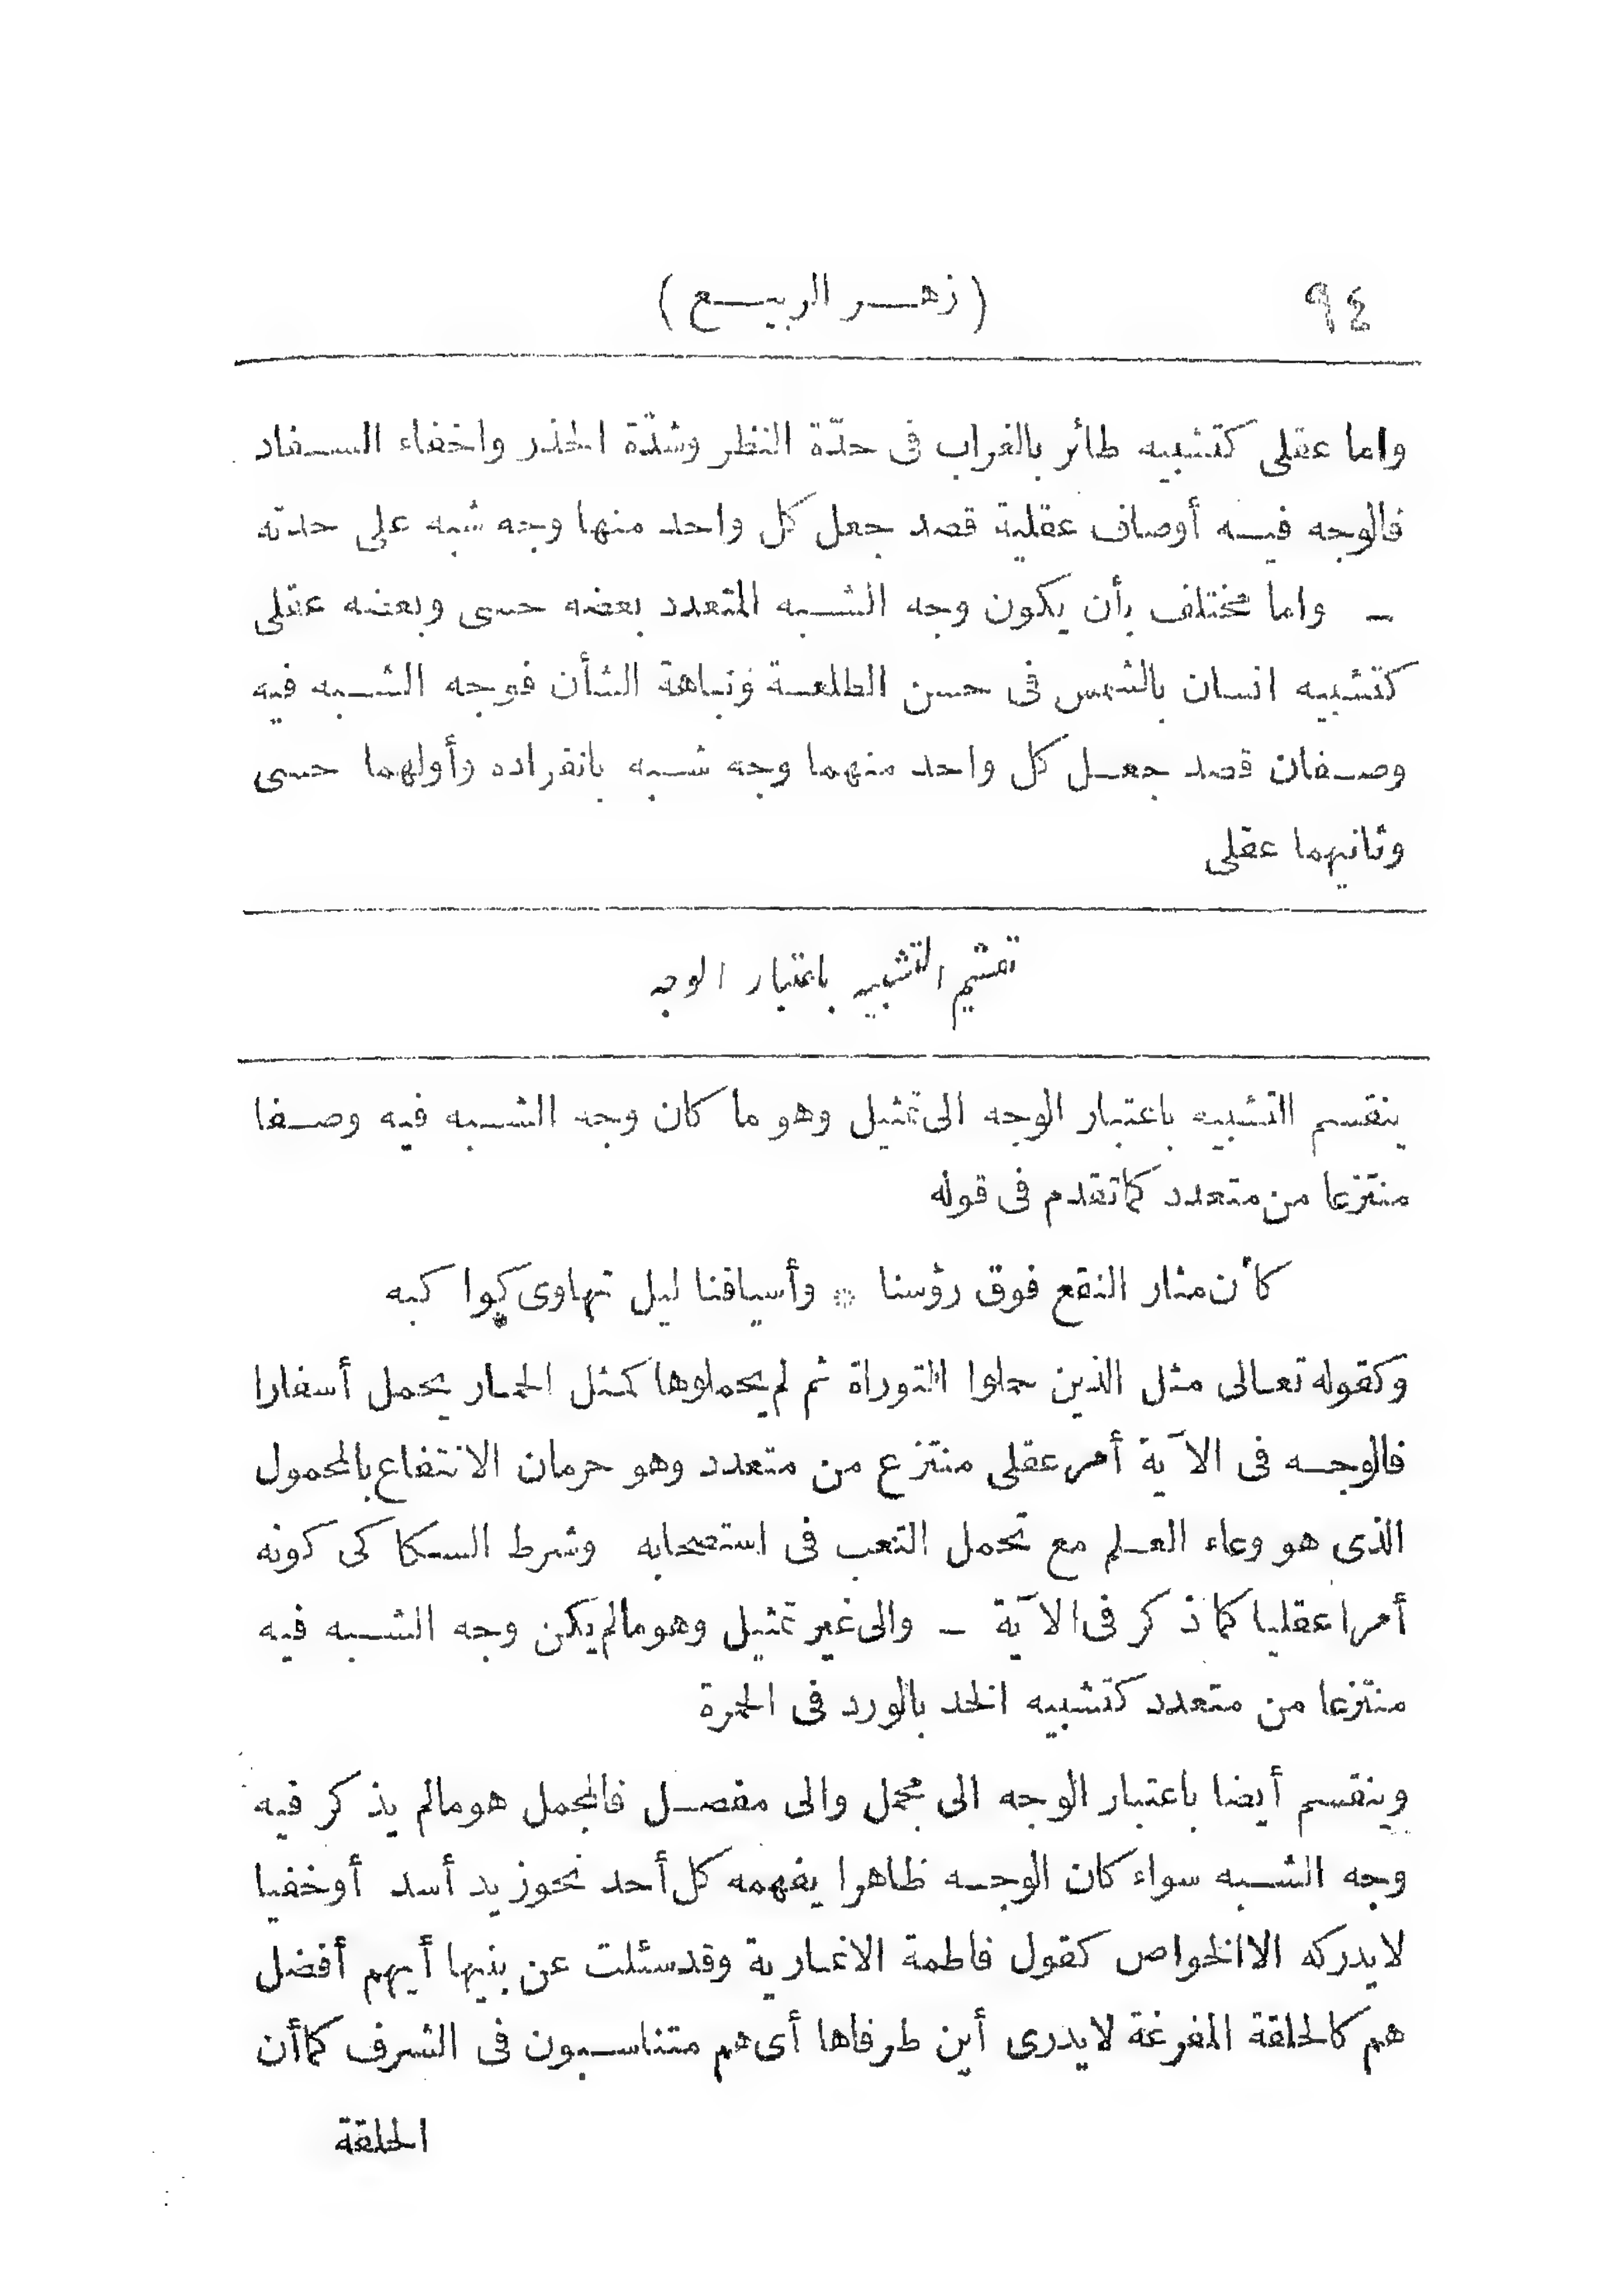 ٩٤
(زهر الربيع)
واما عقلى كتشبيه طائر بالغراب فى حدّة النظر وشدّة الحذر واخفاء السفاد
فالوجه فيه أوصاف عقلية قصد جعل كل واحد منها وجه شبه على حدته
– واما مختلف بأن يكون وجه الشبه المتعدد بعضه حسى وبعضه عقلى
كتشبيه انسان بالشمس فى حسن الطلعة ونباهة الشأن فوجه الشبه فيه
وصفان قصد جعل كل واحد منهما وجه شبه بانفراده وأولهما حسى
وثانيهما عقلى
تقسيم التشبيه باعتبار الوجه
ينقسم التشبيه باعتبار الوجه الى تمثيل وهو ما كان وجه الشبه فيه وصفا
منتزعا من متعدد كما تقدم فى قوله
كأن مثار النقع فوق رؤسنا * وأسيافنا ليل تهاوى كواكبه
وكقوله تعالى مثل الذين حملوا التوراة ثم لم يحملوها كمثل الحمار يحمل أسفارا
فالوجه فى الآية أمر عقلى منتزع من متعدد وهو حرمان الانتفاع بالمحمول
الذى هو وعاء العلم مع تحمل التعب فى استصحابه وشرط السكاكى كونه
أمرا عقليا كما ذكر فى الآية – والى غير تمثيل وهو مالم يكن وجه الشبه فيه
منتزعا من متعدد كتشبيه الخد بالورد فى الحمرة
وينقسم أيضا باعتبار الوجه الى مجمل والى مفصل فالمجمل هو مالم يذكر فيه
وجه الشبه سواء كان الوجه ظاهرا يفهمه كل أحد نحو زيد أسد أو خفيا
لا يدركه الا الخواص كقول فاطمة الانمارية وقد سئلت عن بنيها أيهم أفضل
هم كالحلقة المفرغة لا يدرى أين طرفاها أى هم متناسبون فى الشرف كما أن
الحلقة